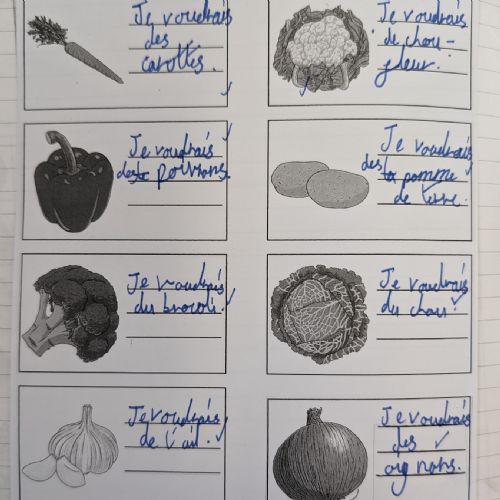 Je voudrais
des
carottes.
Je voudrais
de chou-
fleur.
Je voudrais
des poivrons.
Je voudrais
des
la pomme
de terre.
Je voudrais
du brocoli.
Je voudrais
du chou.
Je voudrais
de l'ail.
Je voudrais
des
oignons.